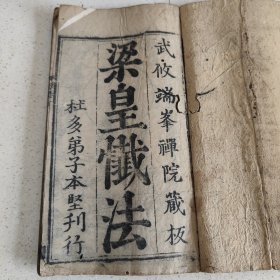 武攸端峯禪院藏板
梁皇懺法
杜多弟子本堅刊行